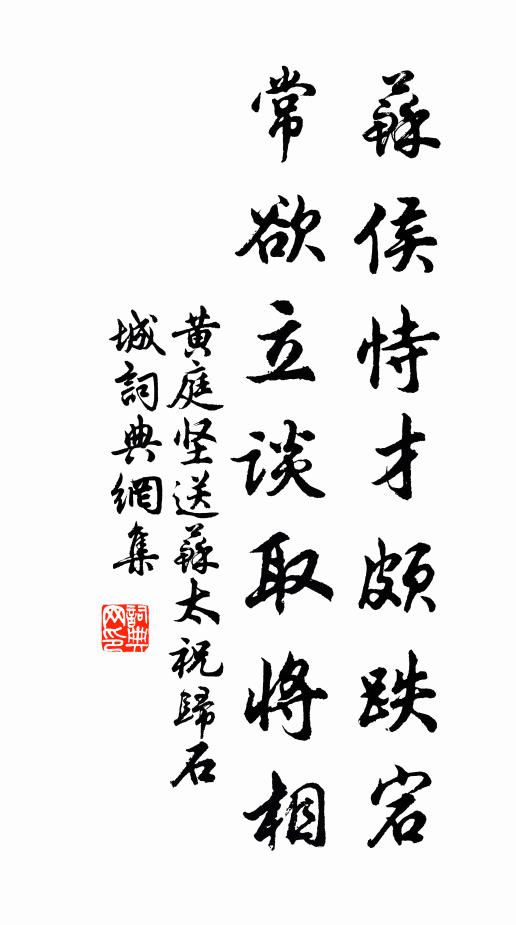 蘇侯恃才頗跌宕
常欲立談取將相
黄庭坚送蘇太祝歸石
城詞典網集
詞典
网印